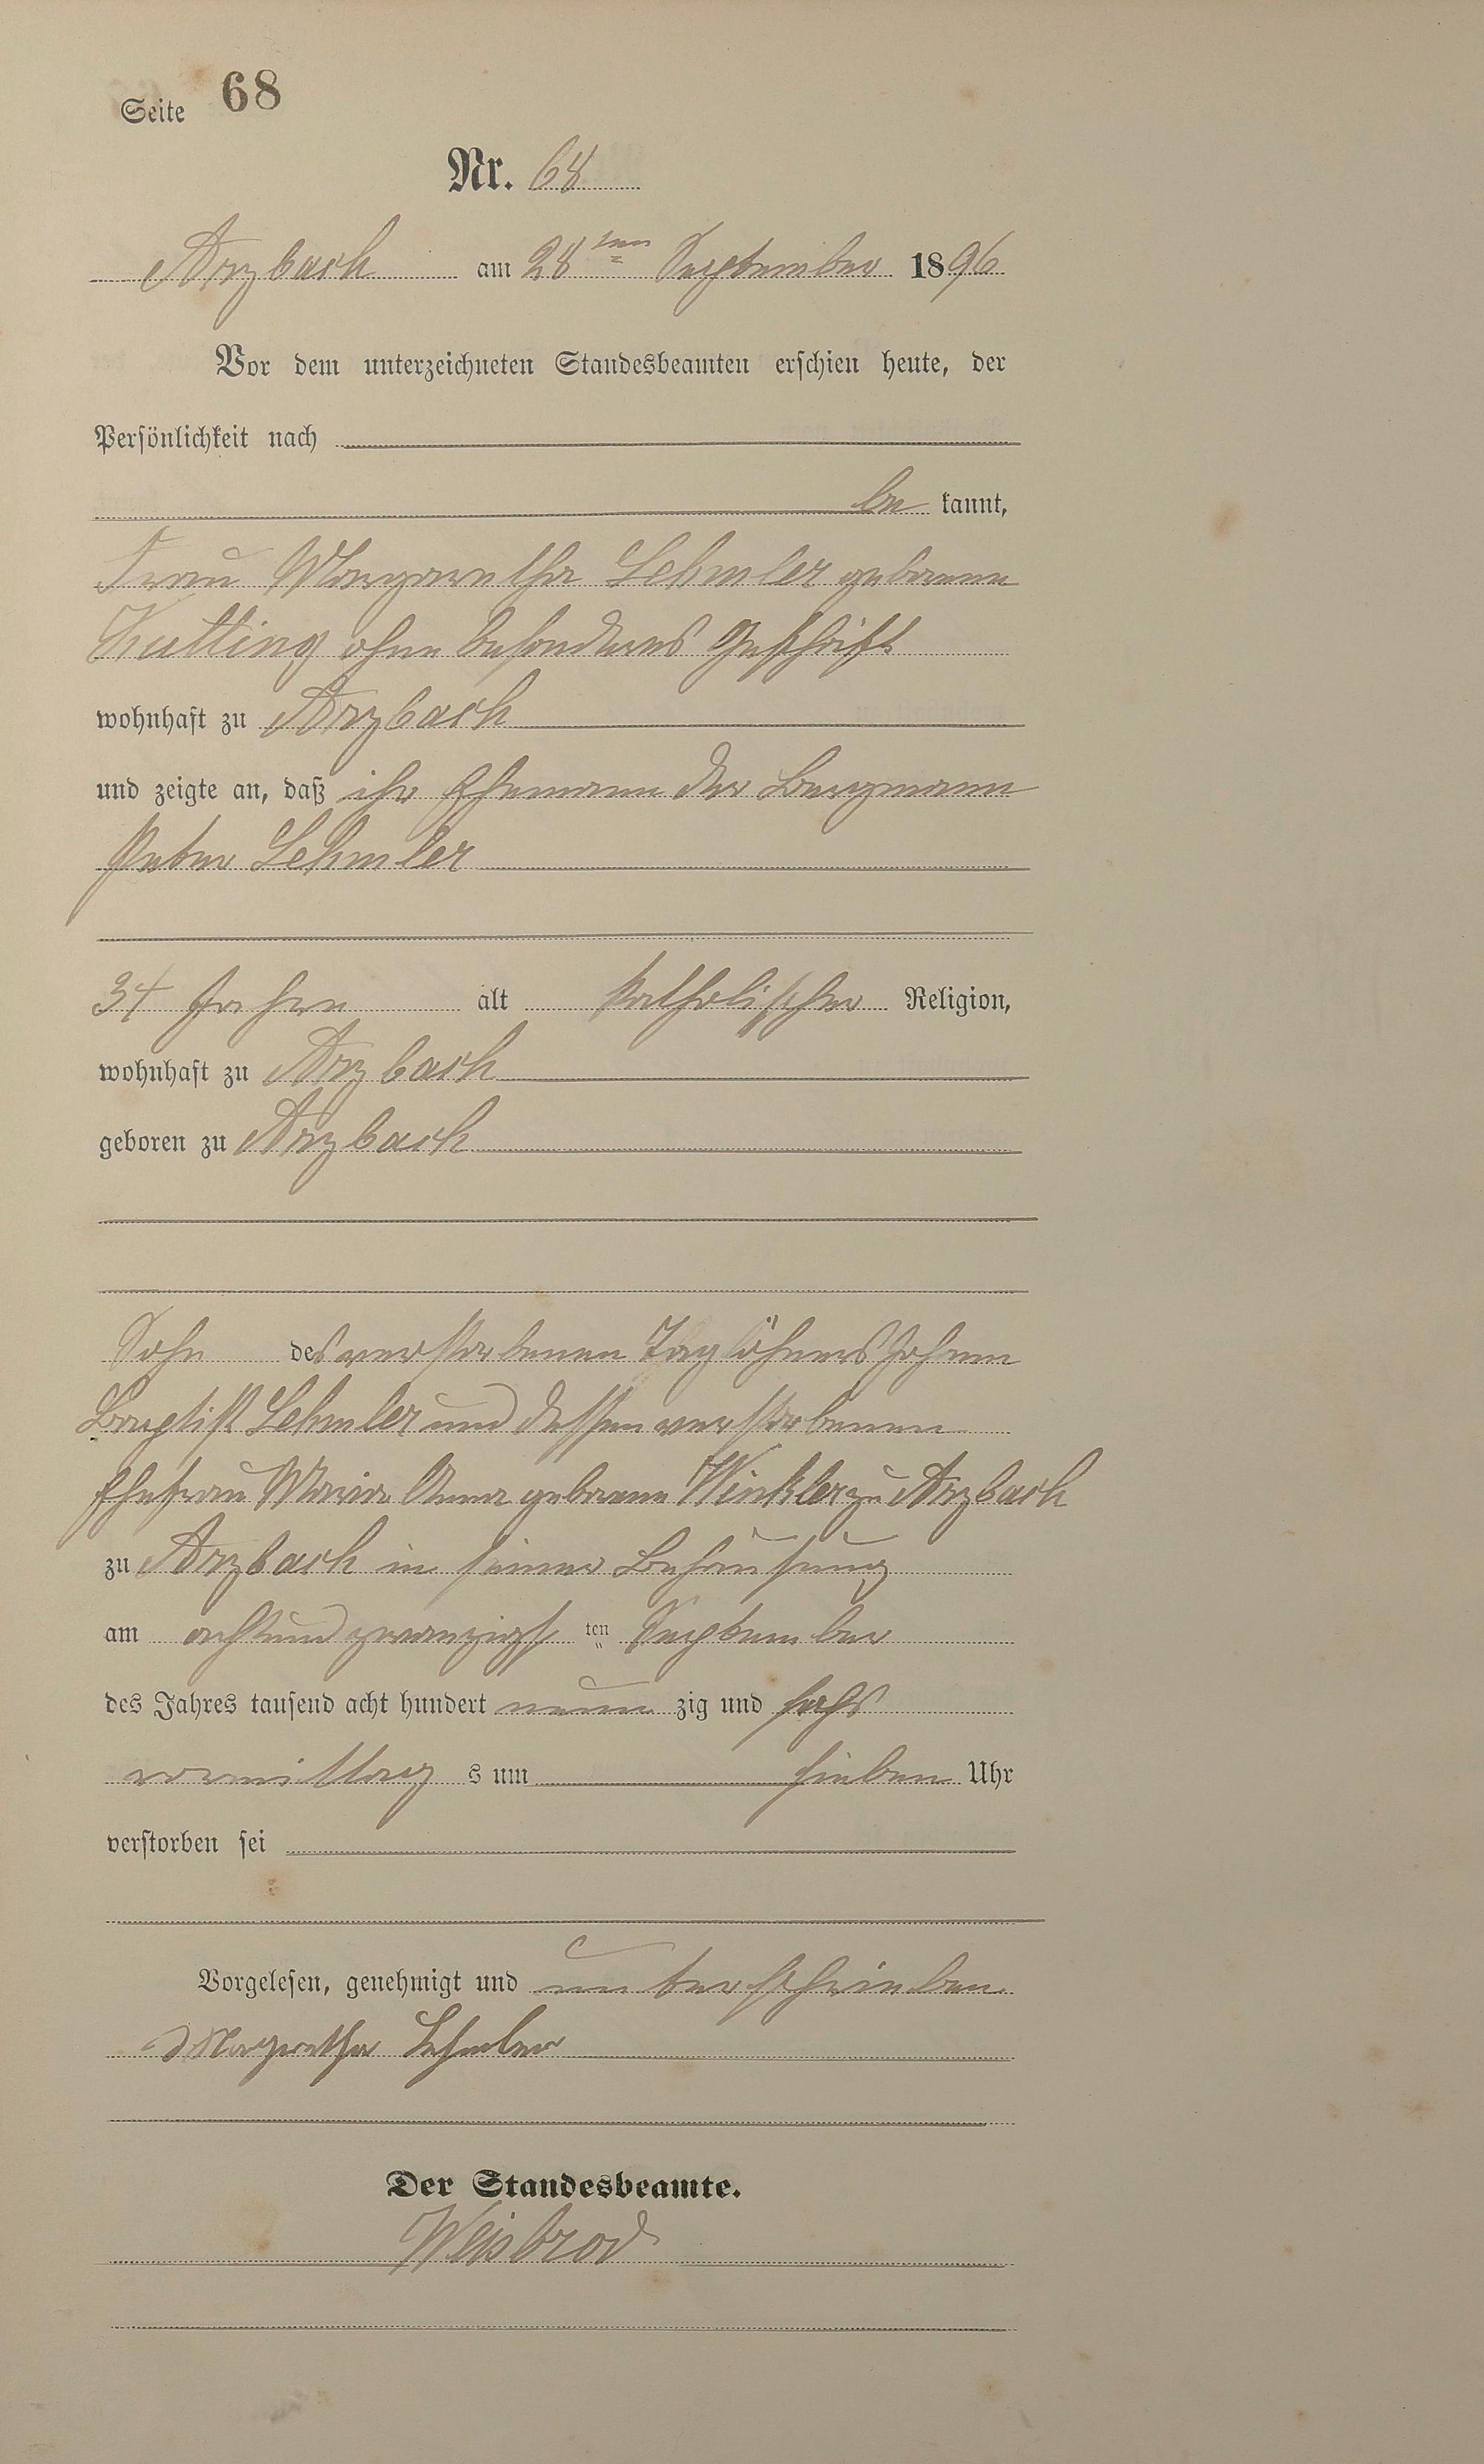 Seite 68
Nr. 68
Arzbach am 28ten September 1896
Vor dem unterzeichneten Standesbeamten erschien heute, der
Persönlichkeit nach
be kannt,
Frau Margaretha Lehmler geborene
Kutting ohne besonderes Geschäft
wohnhaft zu Arzbach
und zeigte an, daß ihr Ehemann der Bergmann
Peter Lehmler
34 Jahre alt katholischer Religion,
wohnhaft zu Arzbach
geboren zu Arzbach
Sohn des verstorbenen Taglöhners Johann
Baptist Lehmler und dessen verstorbenen
Ehefrau Maria Anna geborene Winkler zu Arzbach
zu Arzbach in seiner Behausung
am achtundzwanzigsten September
des Jahres tausend acht hundert neun zig und sechs
vormittag s um sieben Uhr
verstorben sei
Vorgelesen, genehmigt und unterschrieben
Margretha Lehmler
Der Standesbeamte.
Weisbrod